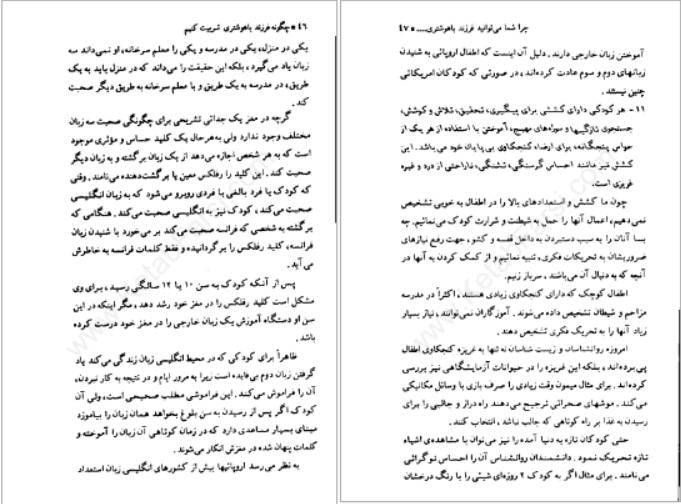 ۴۶ * چگونه فرزند باهوشتری تربیت کنیم
یکی در منزل، یکی در مدرسه و یکی را معلم سرخانه، او نمی‌داند سه
زبان یاد می‌گیرد، بلکه این حقیقت را می‌داند که در منزل باید به یک
طریق، در مدرسه به یک طریق و با معلم سرخانه به طریق دیگر صحبت
کند.
گرچه در مغز یک جدائی تشریحی برای چگونگی صحبت سه زبان
مختلف وجود ندارد ولی به‌هرحال یک کلید حساس و مؤثری موجود
است که به هر شخص اجازه می‌دهد از یک زبان برگشته و به زبان دیگر
صحبت کند. این کلید را رفلکس معین یا برگشت‌دهنده می‌نامند. وقتی
که کودک با فرد بالغی با فردی روبرو می‌شود که به زبان انگلیسی
صحبت می‌کند، کودک نیز به انگلیسی صحبت می‌کند. هنگامی که
برگشته به شخصی که فرانسه صحبت می‌کند بر می‌خورد با شنیدن زبان
فرانسه، کلید رفلکس را برگردانیده و فقط کلمات فرانسه به خاطرش
می‌آید.
پس از آنکه کودک به سن ۱۰ یا ۱۲ سالگی رسید، برای وی
مشکل است کلید رفلکس را در مغز خود رشد دهد، مگر اینکه در این
سن او دستگاه آموزش یک زبان خارجی را در مغز خود درست کرده
باشد.
ظاهراً برای کودکی که در محیط انگلیسی زبان زندگی می‌کند یاد
گرفتن زبان دوم بی‌فایده است زیرا به مرور ایام و در نتیجه به کار نبردن،
آن را فراموش می‌کند. این فراموشی مطلب صحیحی است، ولی آن
کودک اگر پس از رسیدن به سن بلوغ بخواهد همان زبان را بیاموزد
مبنای بسیار مساعدی دارد که در زمان کوتاهی آن زبان را آموخته و
کلمات پنهان شده در مغزش آشکار می‌شوند.
به نظر می‌رسد اروپائیها بیش از کشورهای انگلیسی زبان استعداد
چرا شما می‌توانید فرزند باهوشتری.... * ۴۷
آموختن زبان خارجی دارند. دلیل آن اینست که اطفال اروپائی به شنیدن
زبانهای دوم و سوم عادت کرده‌اند، در صورتی که کودکان امریکائی
چنین نیستند.
۱۱ - هر کودکی دارای کششی برای پیگیری، تحقیق، تلاش و کوشش،
جستجوی تازگیها و سوژه‌های مهیج، آموختن با استفاده از هر یک از
حواس پنجگانه، برای ارضاء کنجکاوی بی‌پایان خود می‌باشد. این
کشش نیز مانند احساس گرسنگی، تشنگی، ناراحتی از درد و غیره
غریزی است.
چون ما کشش و استعدادهای بالا را در اطفال به خوبی تشخیص
نمی‌دهیم، اعمال آنها را حمل به شیطنت و شرارت کودک می‌نمائیم. چه
بسا آنان را به سبب دستبردن به داخل قفسه و کشو، جهت رفع نیازهای
ضروریشان به تحریکات فکری، تنبیه نمائیم و از کمک کردن به آنها در
آنچه که به دنبال آن می‌باشند، سرباز زنیم.
اطفال کوچک که دارای کنجکاوی زیادی هستند، اکثراً در مدرسه
مزاحم و شیطان تشخیص داده می‌شوند. آموزگاران نمی‌توانند، نیاز بسیار
زیاد آنها را به تحریک فکری تشخیص دهند.
امروزه روانشناسان و زیست شناسان نه تنها به غریزه کنجکاوی اطفال
پی برده‌اند، بلکه این غریزه را در حیوانات آزمایشگاهی نیز بررسی
کرده‌اند. برای مثال میمون وقت زیادی را صرف بازی با وسائل مکانیکی
می‌کند. موشهای صحرائی ترجیح می‌دهند راه دراز و جالبی را برای
رسیدن به غذا بر راه کوتاهی که جالب نباشد، انتخاب کنند.
حتی کودکان تازه به دنیا آمده را نیز می‌توان با مشاهده‌ی اشیاء
تازه تحریک نمود. دانشمندان روانشناس آن را احساس نوگرائی
می‌نامند. برای مثال اگر به کودک ۲ روزه‌ای شیئی را با رنگ درخشان